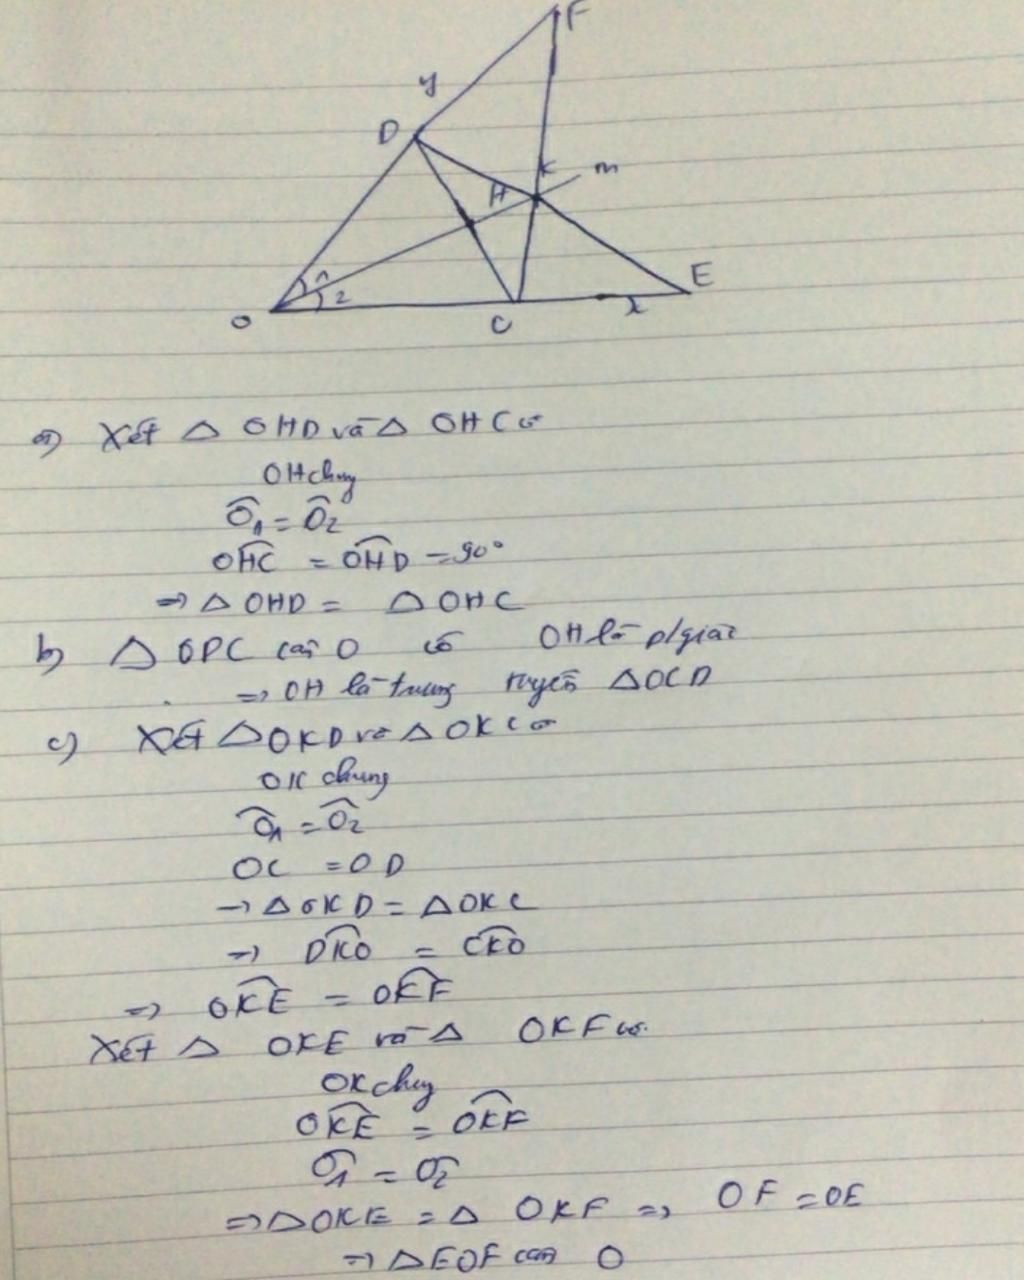 F
y
D
K
m
H
1
2
E
O
C
x
a) Xét △ OHD và △ OHC có
OH chung
Ô₁ = Ô₂
OĤC = OĤD = 90°
=> △ OHD = △ OHC
b) △ ODC cân O có OH là p/giác
=> OH là trung tuyến △OCD
c) Xét △OKD và △OKC có
OK chung
Ô₁ = Ô₂
OC = OD
→ △OKD = △OKC
=> DK̂O = CK̂O
=> OK̂E = OK̂F
Xét △ OKE và △ OKF có
OK chung
OK̂E = OK̂F
Ô₁ = Ô₂
=> △OKE = △ OKF => OF = OE
=> △EOF cân O